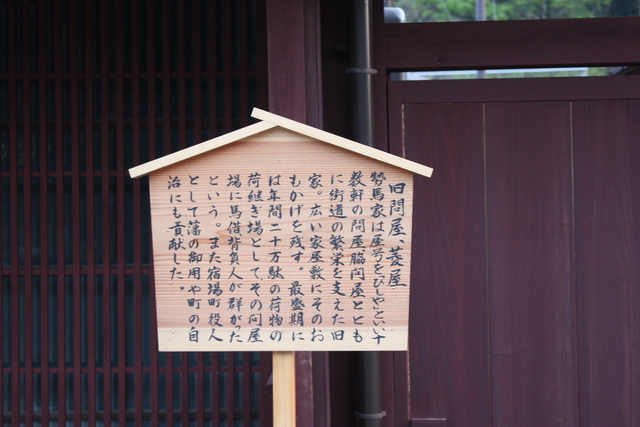 旧問屋、菱屋
勢馬家は屋号をひしやといい十
数軒の問屋、脇問屋ととも
に街道の繁栄を支えた旧
家。広い家屋敷にそのお
もかげを残す。最盛期に
は年間二十万駄の荷物の
荷継ぎ場として、その問屋
場に馬借背負人が群がった
という。また宿場町役人
として藩の御用や町の自
治にも貢献した。